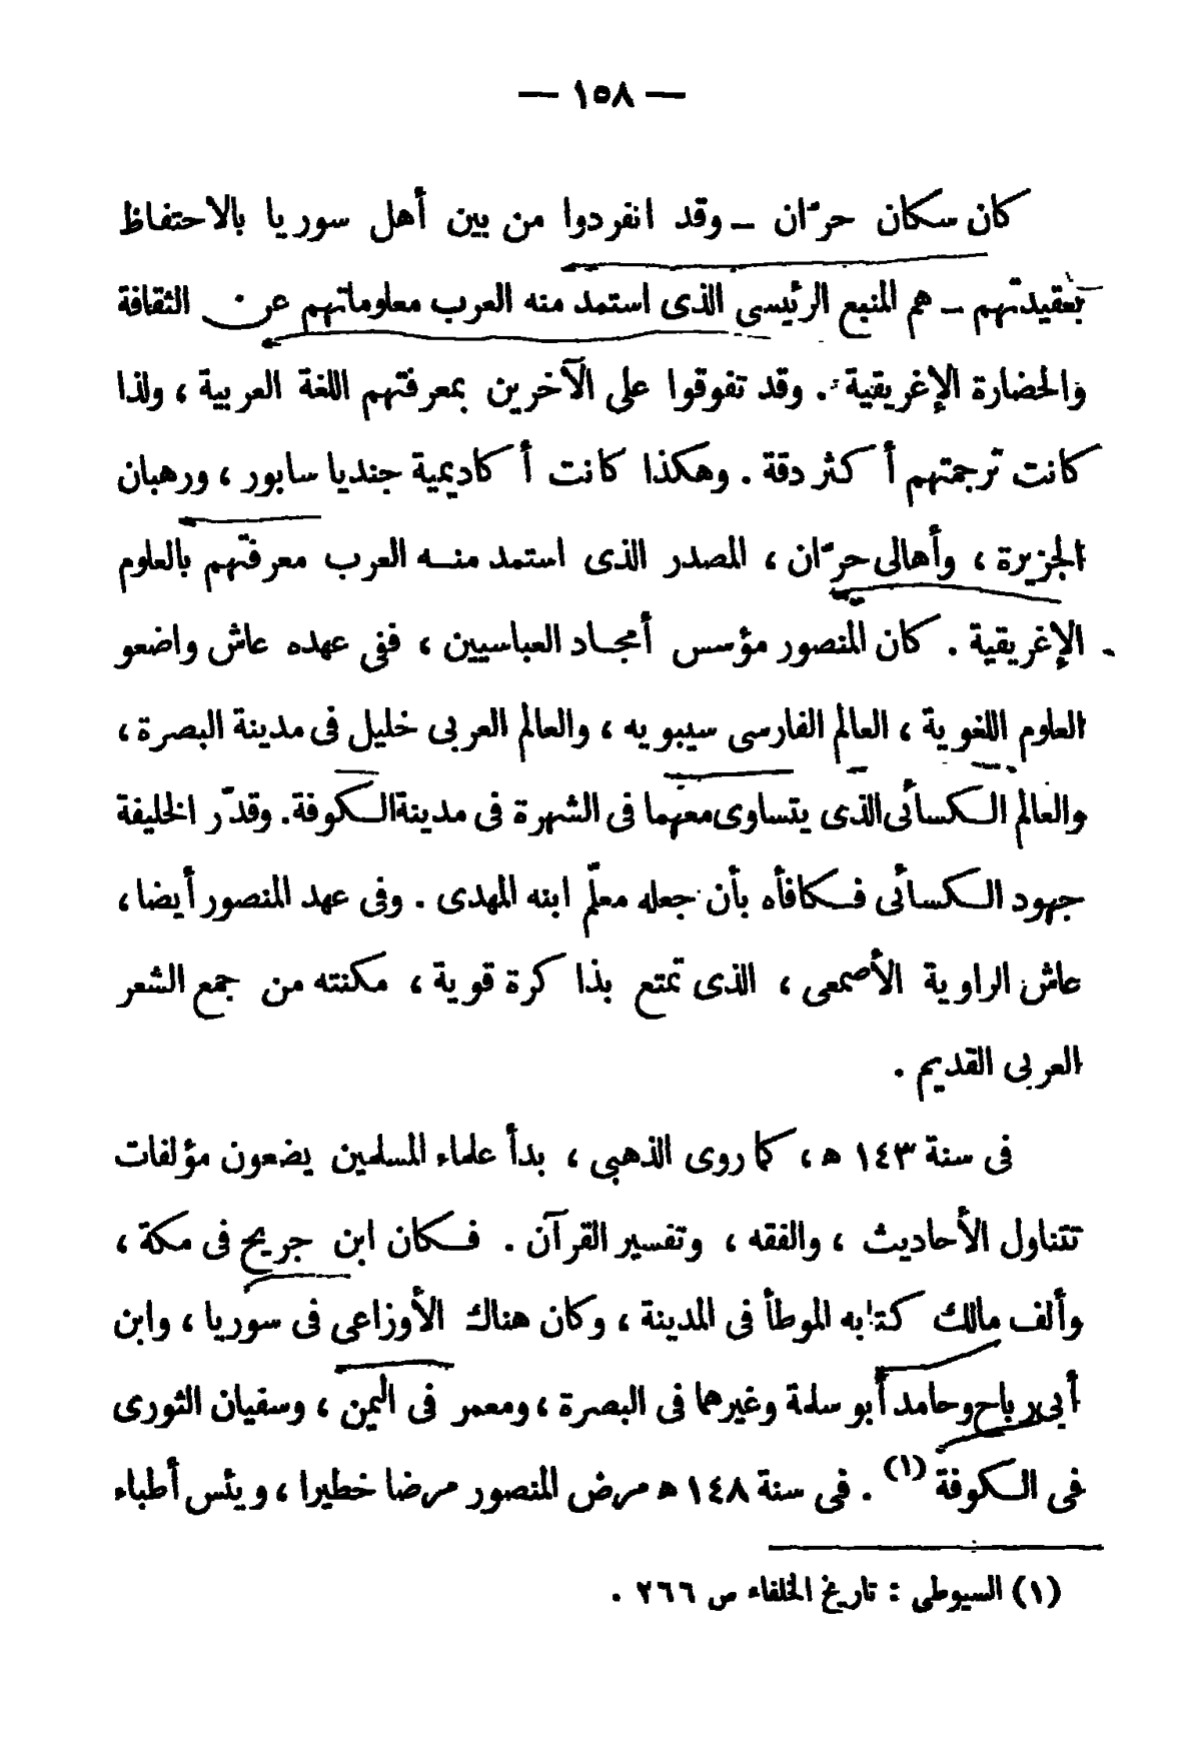 — ١٥٨ —
كان سكان حرّان – وقد انفردوا من بين أهل سوريا بالاحتفاظ
بعقيدتهم – هم المنبع الرئيسى الذى استمد منه العرب معلوماتهم عن الثقافة
والحضارة الإغريقية . وقد تفوقوا على الآخرين بمعرفتهم اللغة العربية ، ولذا
كانت ترجمتهم أكثر دقة . وهكذا كانت أكاديمية جنديا سابور ، ورهبان
الجزيرة ، وأهالى حرّان ، المصدر الذى استمد منه العرب معرفتهم بالعلوم
الإغريقية . كان المنصور مؤسس أمجاد العباسيين ، ففى عهده عاش واضعو
العلوم اللغوية ، العالم الفارسى سيبويه ، والعالم العربى خليل فى مدينة البصرة ،
والعالم الكسائى الذى يتساوى معهما فى الشهرة فى مدينة الكوفة . وقدّر الخليفة
جهود الكسائى فكافأه بأن جعله معلّم ابنه المهدى . وفى عهد المنصور أيضا ،
عاش الراوية الأصمعى ، الذى تمتع بذاكرة قوية ، مكنته من جمع الشعر
العربى القديم .
فى سنة ١٤٣ ه ، كما روى الذهبى ، بدأ علماء المسلمين يضعون مؤلفات
تتناول الأحاديث ، والفقه ، وتفسير القرآن . فكان ابن جريح فى مكة ،
وألف مالك كتابه الموطأ فى المدينة ، وكان هناك الأوزاعى فى سوريا ، وابن
أبى رباح وحامد أبو سلمة وغيرهما فى البصرة ، ومعمر فى اليمن ، وسفيان الثورى
فى الكوفة (١) . فى سنة ١٤٨ ه مرض المنصور مرضا خطيرا ، ويئس أطباء
(١) السيوطى : تاريخ الخلفاء ص ٢٦٦ .